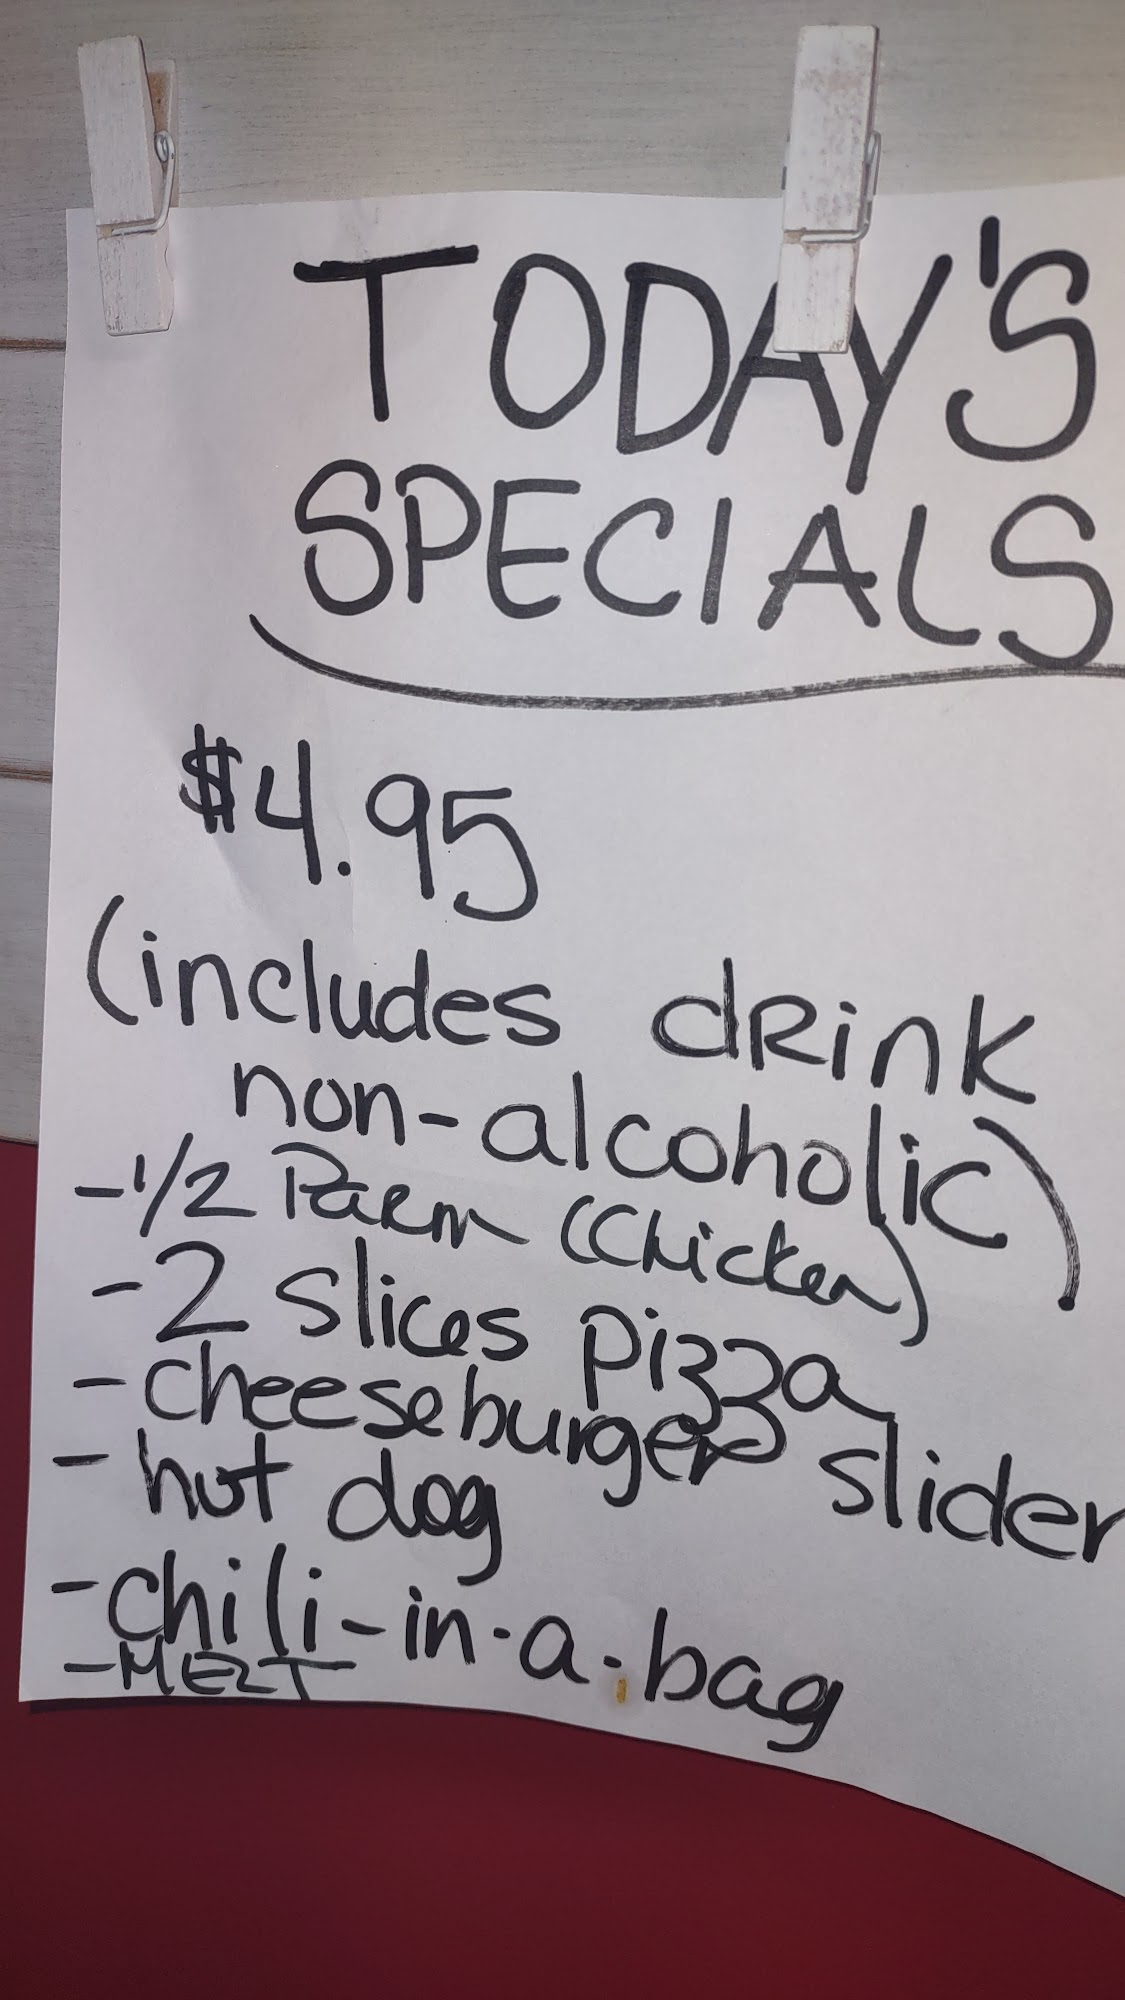 TODAY'S
SPECIALS
$4.95
(includes drink
non-alcoholic)
-1/2 Parm (Chicken)
-2 slices pizza
-cheeseburger slider
-hot dog
-chili-in-a-bag
-MELT